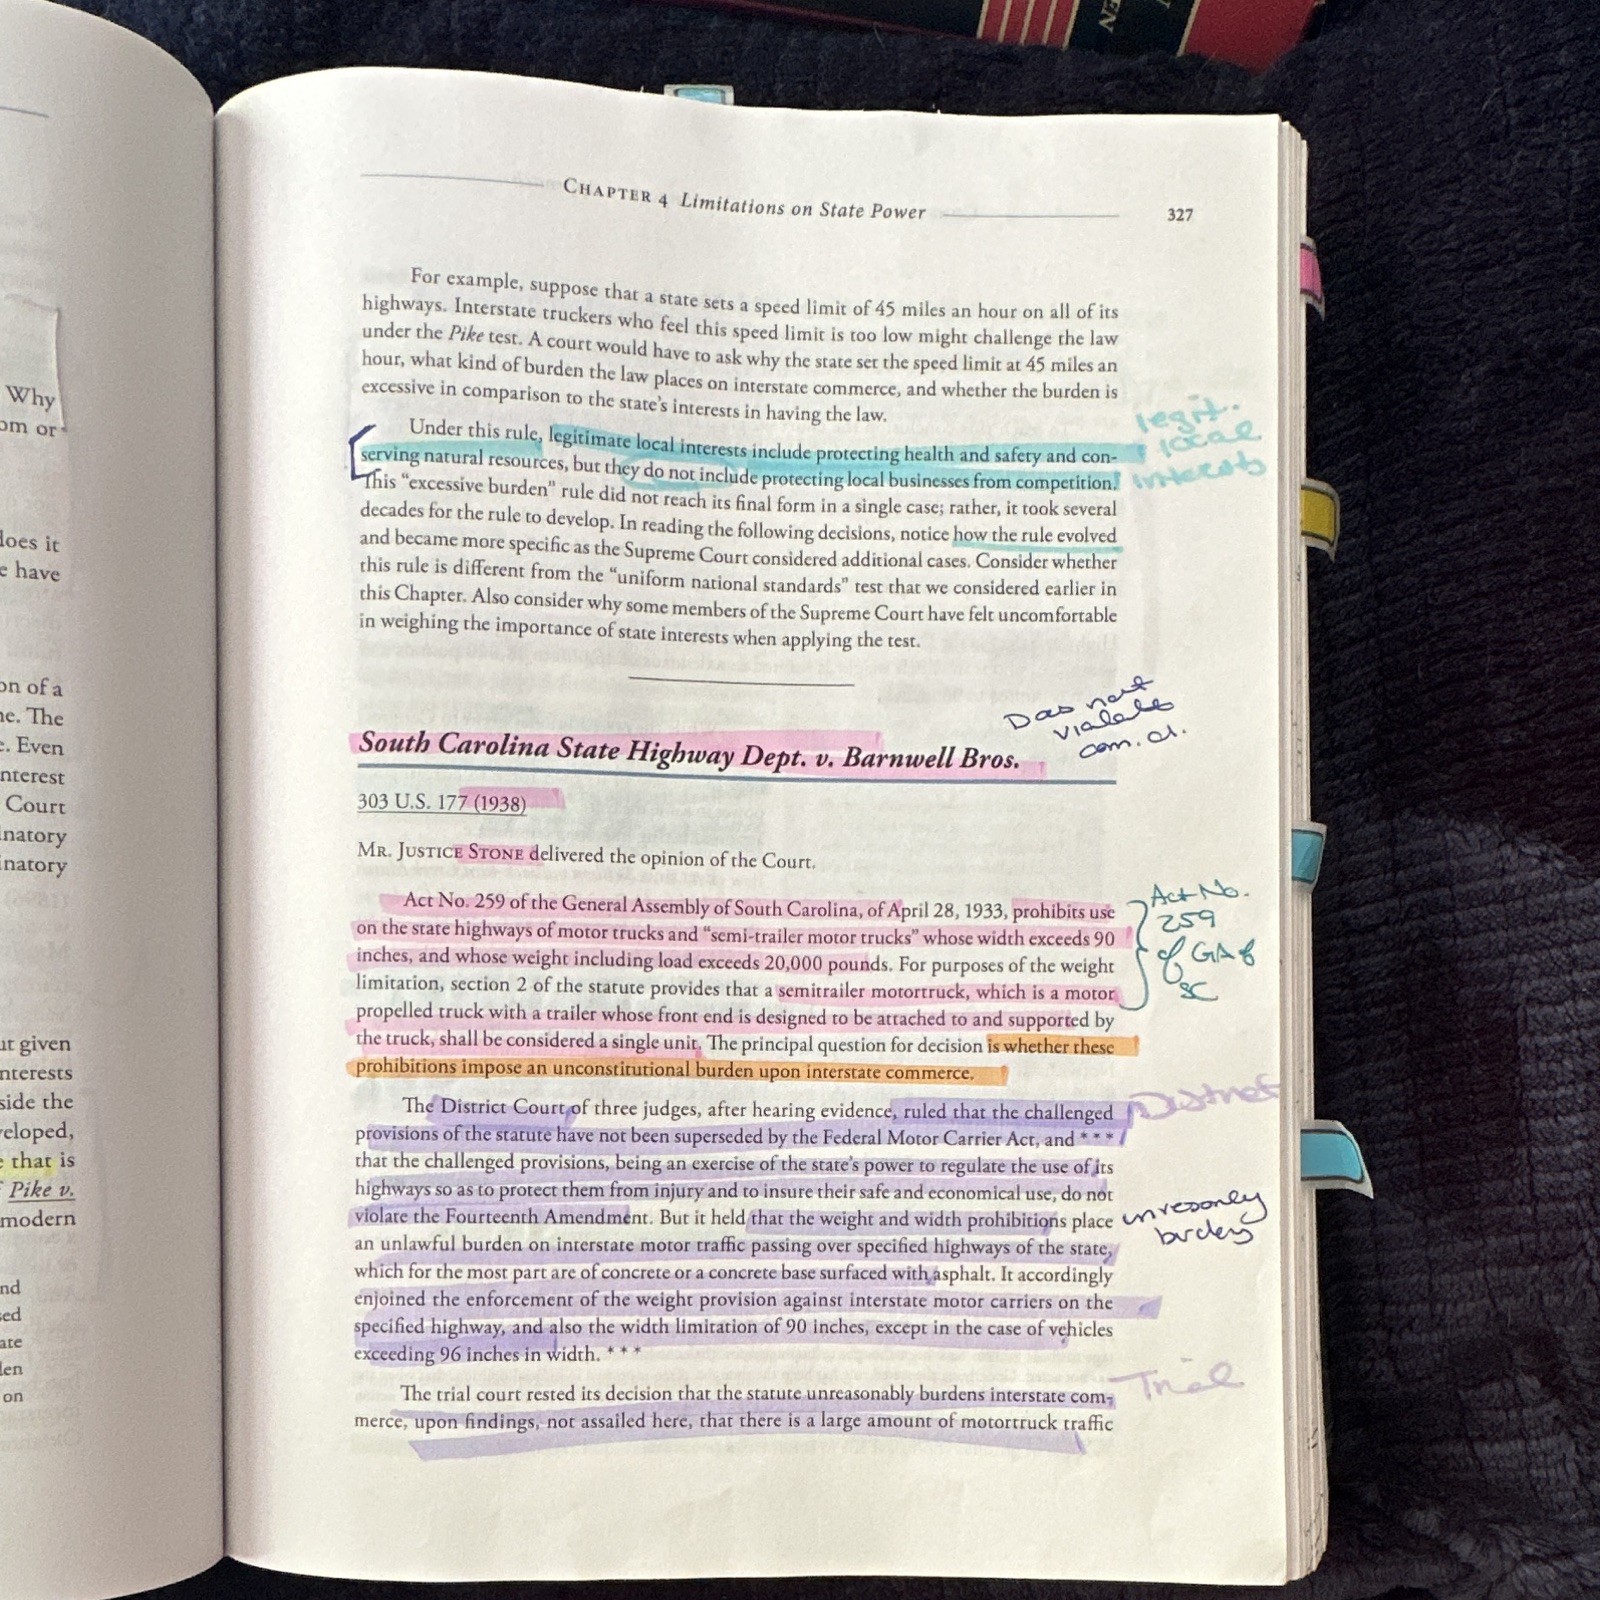 EN
Why
om or
does it
e have
on of a
ne. The
e. Even
nterest
Court
inatory
inatory
ut given
nterests
side the
veloped,
e that is
Pike v.
modern
nd
sed
are
len
on
CHAPTER 4 Limitations on State Power
327
For example, suppose that a state sets a speed limit of 45 miles an hour on all of its
highways. Interstate truckers who feel this speed limit is too low might challenge the law
under the Pike test. A court would have to ask why the state set the speed limit at 45 miles an
hour, what kind of burden the law places on interstate commerce, and whether the burden is
excessive in comparison to the state's interests in having the law.
Under this rule, legitimate local interests include protecting health and safety and con-
serving natural resources, but they do not include protecting local businesses from competition.
This "excessive burden" rule did not reach its final form in a single case; rather, it took several
decades for the rule to develop. In reading the following decisions, notice how the rule evolved
and became more specific as the Supreme Court considered additional cases. Consider whether
this rule is different from the "uniform national standards" test that we considered earlier in
this Chapter. Also consider why some members of the Supreme Court have felt uncomfortable
in weighing the importance of state interests when applying the test.
legit.
local
interests
Does not
violate
com. cl.
South Carolina State Highway Dept. v. Barnwell Bros.
303 U.S. 177 (1938)
MR. JUSTICE STONE delivered the opinion of the Court.
Act No. 259 of the General Assembly of South Carolina, of April 28, 1933, prohibits use
on the state highways of motor trucks and "semi-trailer motor trucks" whose width exceeds 90
inches, and whose weight including load exceeds 20,000 pounds. For purposes of the weight
limitation, section 2 of the statute provides that a semitrailer motortruck, which is a motor
propelled truck with a trailer whose front end is designed to be attached to and supported by
the truck, shall be considered a single unit. The principal question for decision is whether these
prohibitions impose an unconstitutional burden upon interstate commerce.
Act No.
259
of GA of
SC
The District Court of three judges, after hearing evidence, ruled that the challenged
provisions of the statute have not been superseded by the Federal Motor Carrier Act, and * * *
that the challenged provisions, being an exercise of the state's power to regulate the use of its
highways so as to protect them from injury and to insure their safe and economical use, do not
violate the Fourteenth Amendment. But it held that the weight and width prohibitions place
an unlawful burden on interstate motor traffic passing over specified highways of the state,
which for the most part are of concrete or a concrete base surfaced with asphalt. It accordingly
enjoined the enforcement of the weight provision against interstate motor carriers on the
specified highway, and also the width limitation of 90 inches, except in the case of vehicles
exceeding 96 inches in width. * * *
District
The trial court rested its decision that the statute unreasonably burdens interstate com-
merce, upon findings, not assailed here, that there is a large amount of motortruck traffic
Trial